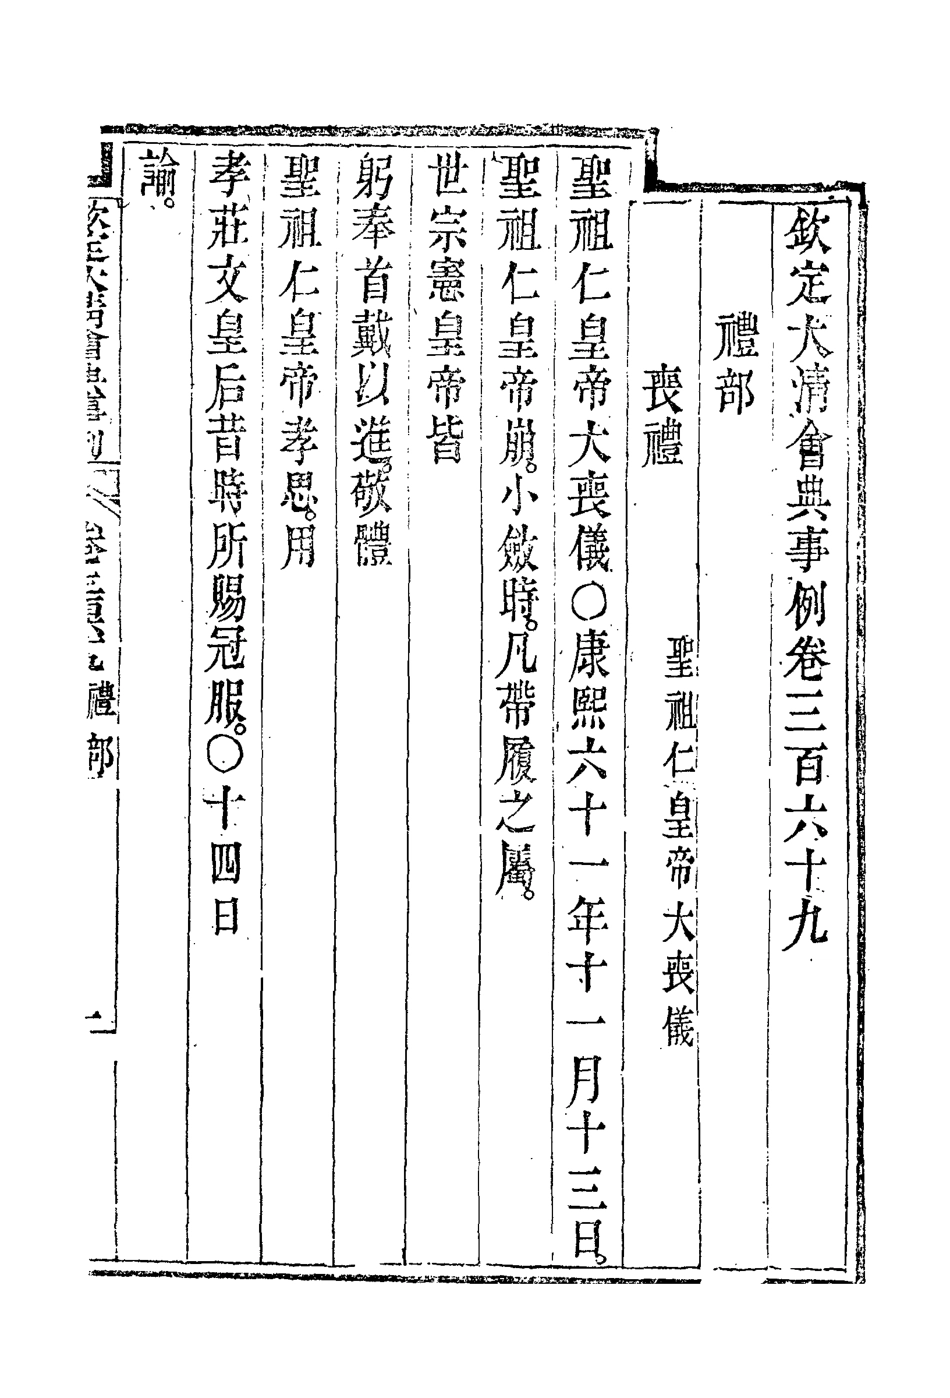 欽定大清會典事例卷三百六十九
禮部
喪禮 聖祖仁皇帝大喪儀
聖祖仁皇帝大喪儀〇康熙六十一年十一月十三日。
聖祖仁皇帝崩。小斂時。凡帶履之屬。
世宗憲皇帝皆
躬奉首戴以進。敬體
聖祖仁皇帝孝思。用
孝莊文皇后昔時所賜冠服。〇十四日
諭。
欽定大清會典事例 卷三百六十九 禮部 一